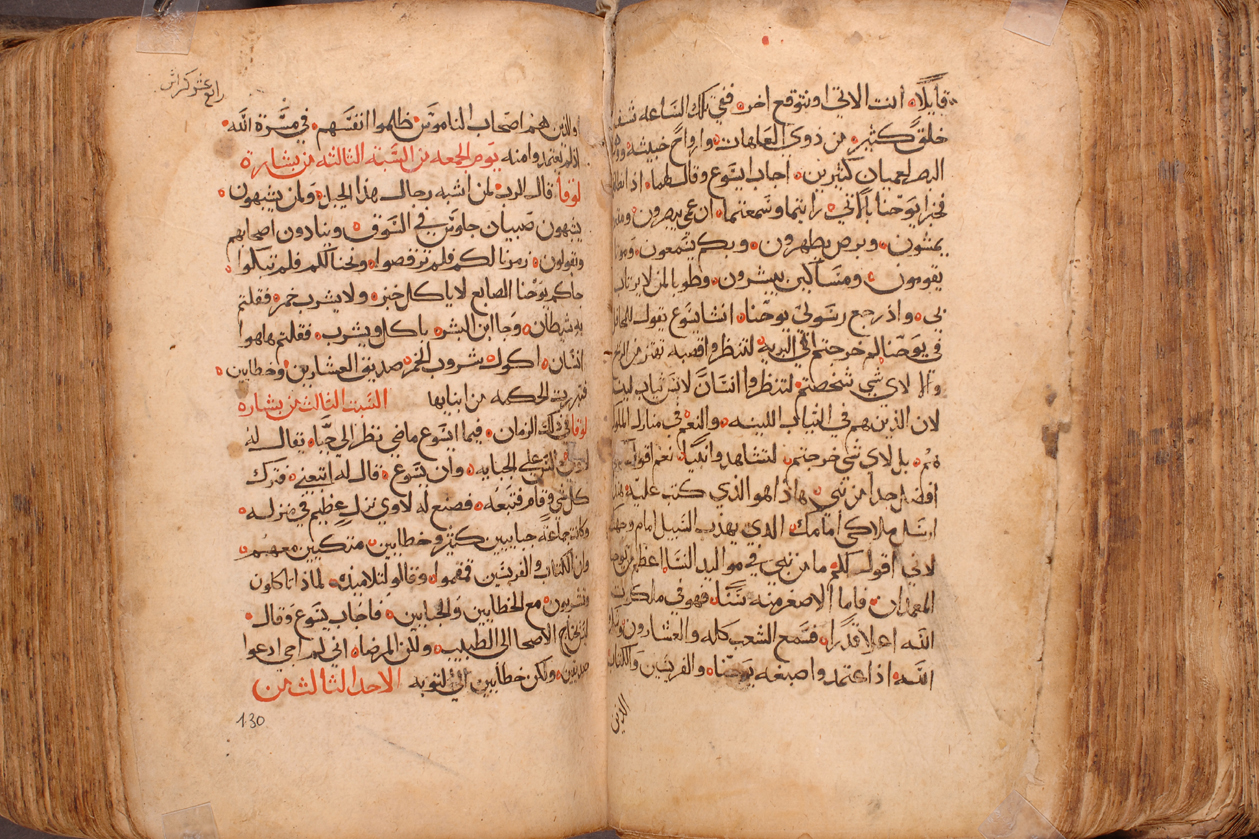 قايلاً انت الاتي او نتوقع اخر ففي تلك الساعه شفا
خلق كثير من ذوي العاهات وارواح خبيثه
البصر لعميان كثيرين اجاب ايسوع وقال لهما اذا انطلقا
فخبرا يوحنا بالذي رايتما وسمعتما ان عمي يبصرون
يمشون وبرص يطهرون وبكم يسمعون
يقومون ومساكين يبشرون وطوبا لمن لا يرتاب
بي واذ رجع رسولي يوحنا انشا يسوع يقول للجماعه
في يوحنا لم خرجتم الي البريه لتنظروا قصبه تفتز من الريح
والا لاي شي شخصتم لتنظروا انسان لابس ثياب لينه
لان الذين هم في الثياب اللينه والنعم في منازل الملوك
هم بل لاي شي خرجتم لتشاهدوا نبياً نعم اقول
افضل جدا من نبي هاذا هو الذي كتب عليه
ارسل ملاكي امامك الذي يهذب السبيل امام وجهك
لاني اقول لكم ما من نبي في مواليد النسا اعظم من يوحنا
المعمدان فاما الاصغر منه سناً فهو في ملكوت
الله اعلا قدراً فسمع الشعب كله والعشارون
الله اذ اعتمدوا صبغه يوحنا والفريسين والكتاب
الذين
رابع عشر كراس
والذين هم اصحاب الناموس ظلموا انفسهم في مسرة الله
اذ لم يعتمدوا منه يوم الجمعه من السبه الثالثه من بشارة
لوقا قال الرب لمن اشبه رجال هذا الجيل ولمن يشبهون
يشبهون صبيان جلوس في السوق وينادون اصحابهم
ويقولون زمرنا لكم فلم ترقصوا ونحنا لكم فلم تبكوا
جاكم يوحنا الصابغ لا ياكل خبز ولا يشرب خمر فقلتم
به شيطان وجا ابن البشر ياكل ويشرب فقلتم هاهوا
انسان اكول شروب الخمر صديق العشارين وخطايين
فتبررت الحكمه من ابنايها السبت الثالث من بشاره
لوقا في ذلك الزمان فيما ايسوع ماضي نظر الي جبا يقال له
لاوي جالس علي الجبايه وان يسوع قال له اتبعني فترك
كل شي وقام فتبعه فصنع له لاوي نزل عظيم في منزله
وكانت جماعة جبايين كثير وخطايين متكيين معهم
وان الكتاب والفريسين فمقموا وقالو لتلاميذه لماذا تاكلون
وتشربون مع الخطايين والجبايين فاجاب يسوع وقال
ليس يحتاج الاصحا الي الطبيب ولكن المرضا اني لم اجي ادعوا
صديقين ولكن خطايين الي التوبه الاحد الثالث من
130